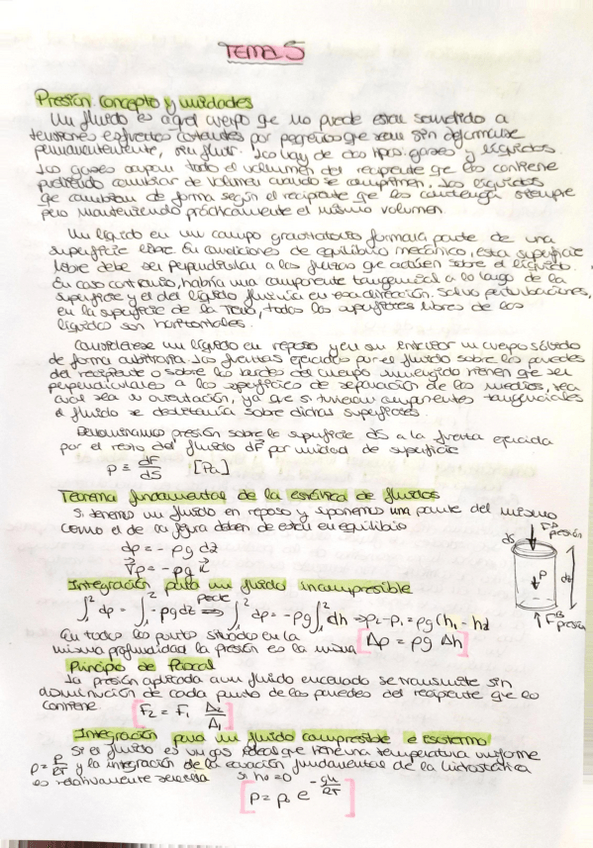 TEMA 5
Presión. Concepto y unidades
Un fluido es aquel cuerpo que no puede estar sometido a
tensiones o esfuerzos cortantes por pequeños que sean sin deformarse
permanentemente, sin fluir. Los hay de dos tipos: gases y líquidos.
Los gases ocupan todo el volumen del recipiente que los contiene
pudiendo cambiar de volumen cuando se comprimen. Los líquidos
que cambian de forma según el recipiente que los contenga siempre
pero manteniendo prácticamente el mismo volumen
Un líquido en un campo gravitatorio formará parte de una
superficie libre. En condiciones de equilibrio mecánico, esta superficie
libre debe ser perpendicular a las fuerzas que actúen sobre el líquido.
En caso contrario, habría una componente tangencial a lo largo de la
superficie y el del líquido fluiría en esa dirección. Salvo perturbaciones,
en la superficie de la Tierra, todas las superficies libres de los
líquidos son horizontales.
Considérese un líquido en reposo y en su interior un cuerpo sólido
de forma arbitraria. Las fuerzas ejercidas por el fluido sobre las paredes
del recipiente o sobre los bordes del cuerpo sumergido tienen que ser
perpendiculares a las superficies de separación de los medios, sea
cual sea su orientación, ya que si tuvieran componentes tangenciales
el fluido se deslizaría sobre dichas superficies.
Denominamos presión sobre la superficie dS a la fuerza ejercida
por el resto del fluido dF por unidad de superficie
p ≡ dF/dS [Pa]
Teorema fundamental de la estática de fluidos
Si tenemos un fluido en reposo y suponemos una parte del mismo
como el de la figura deben de estar en equilibrio
dp = - ρg dz
∇p = - ρg k
dS
presión
P
dz
presión
Integración para un fluido incompresible
∫₁² dp = ∫₁² -ρg dz ⇒ ∫₁² dp = -ρg ∫₁² dh ⇒ p₂ - p₁ = ρg (h₁ - h₂
En todos los puntos situados en la
misma profundidad la presión es la misma [Δp = ρg Δh]
Principio de Pascal
La presión aplicada a un fluido encerrado se transmite sin
disminución de cada punto de las paredes del recipiente que lo
contiene [F₂ = F₁ A₂/A₁]
Integración para un fluido compresible e isotermo
Si el fluido es un gas ideal que tiene una temperatura uniforme
y la integración de la ecuación fundamental de la hidrostática
es relativamente sencilla si h₀ = 0